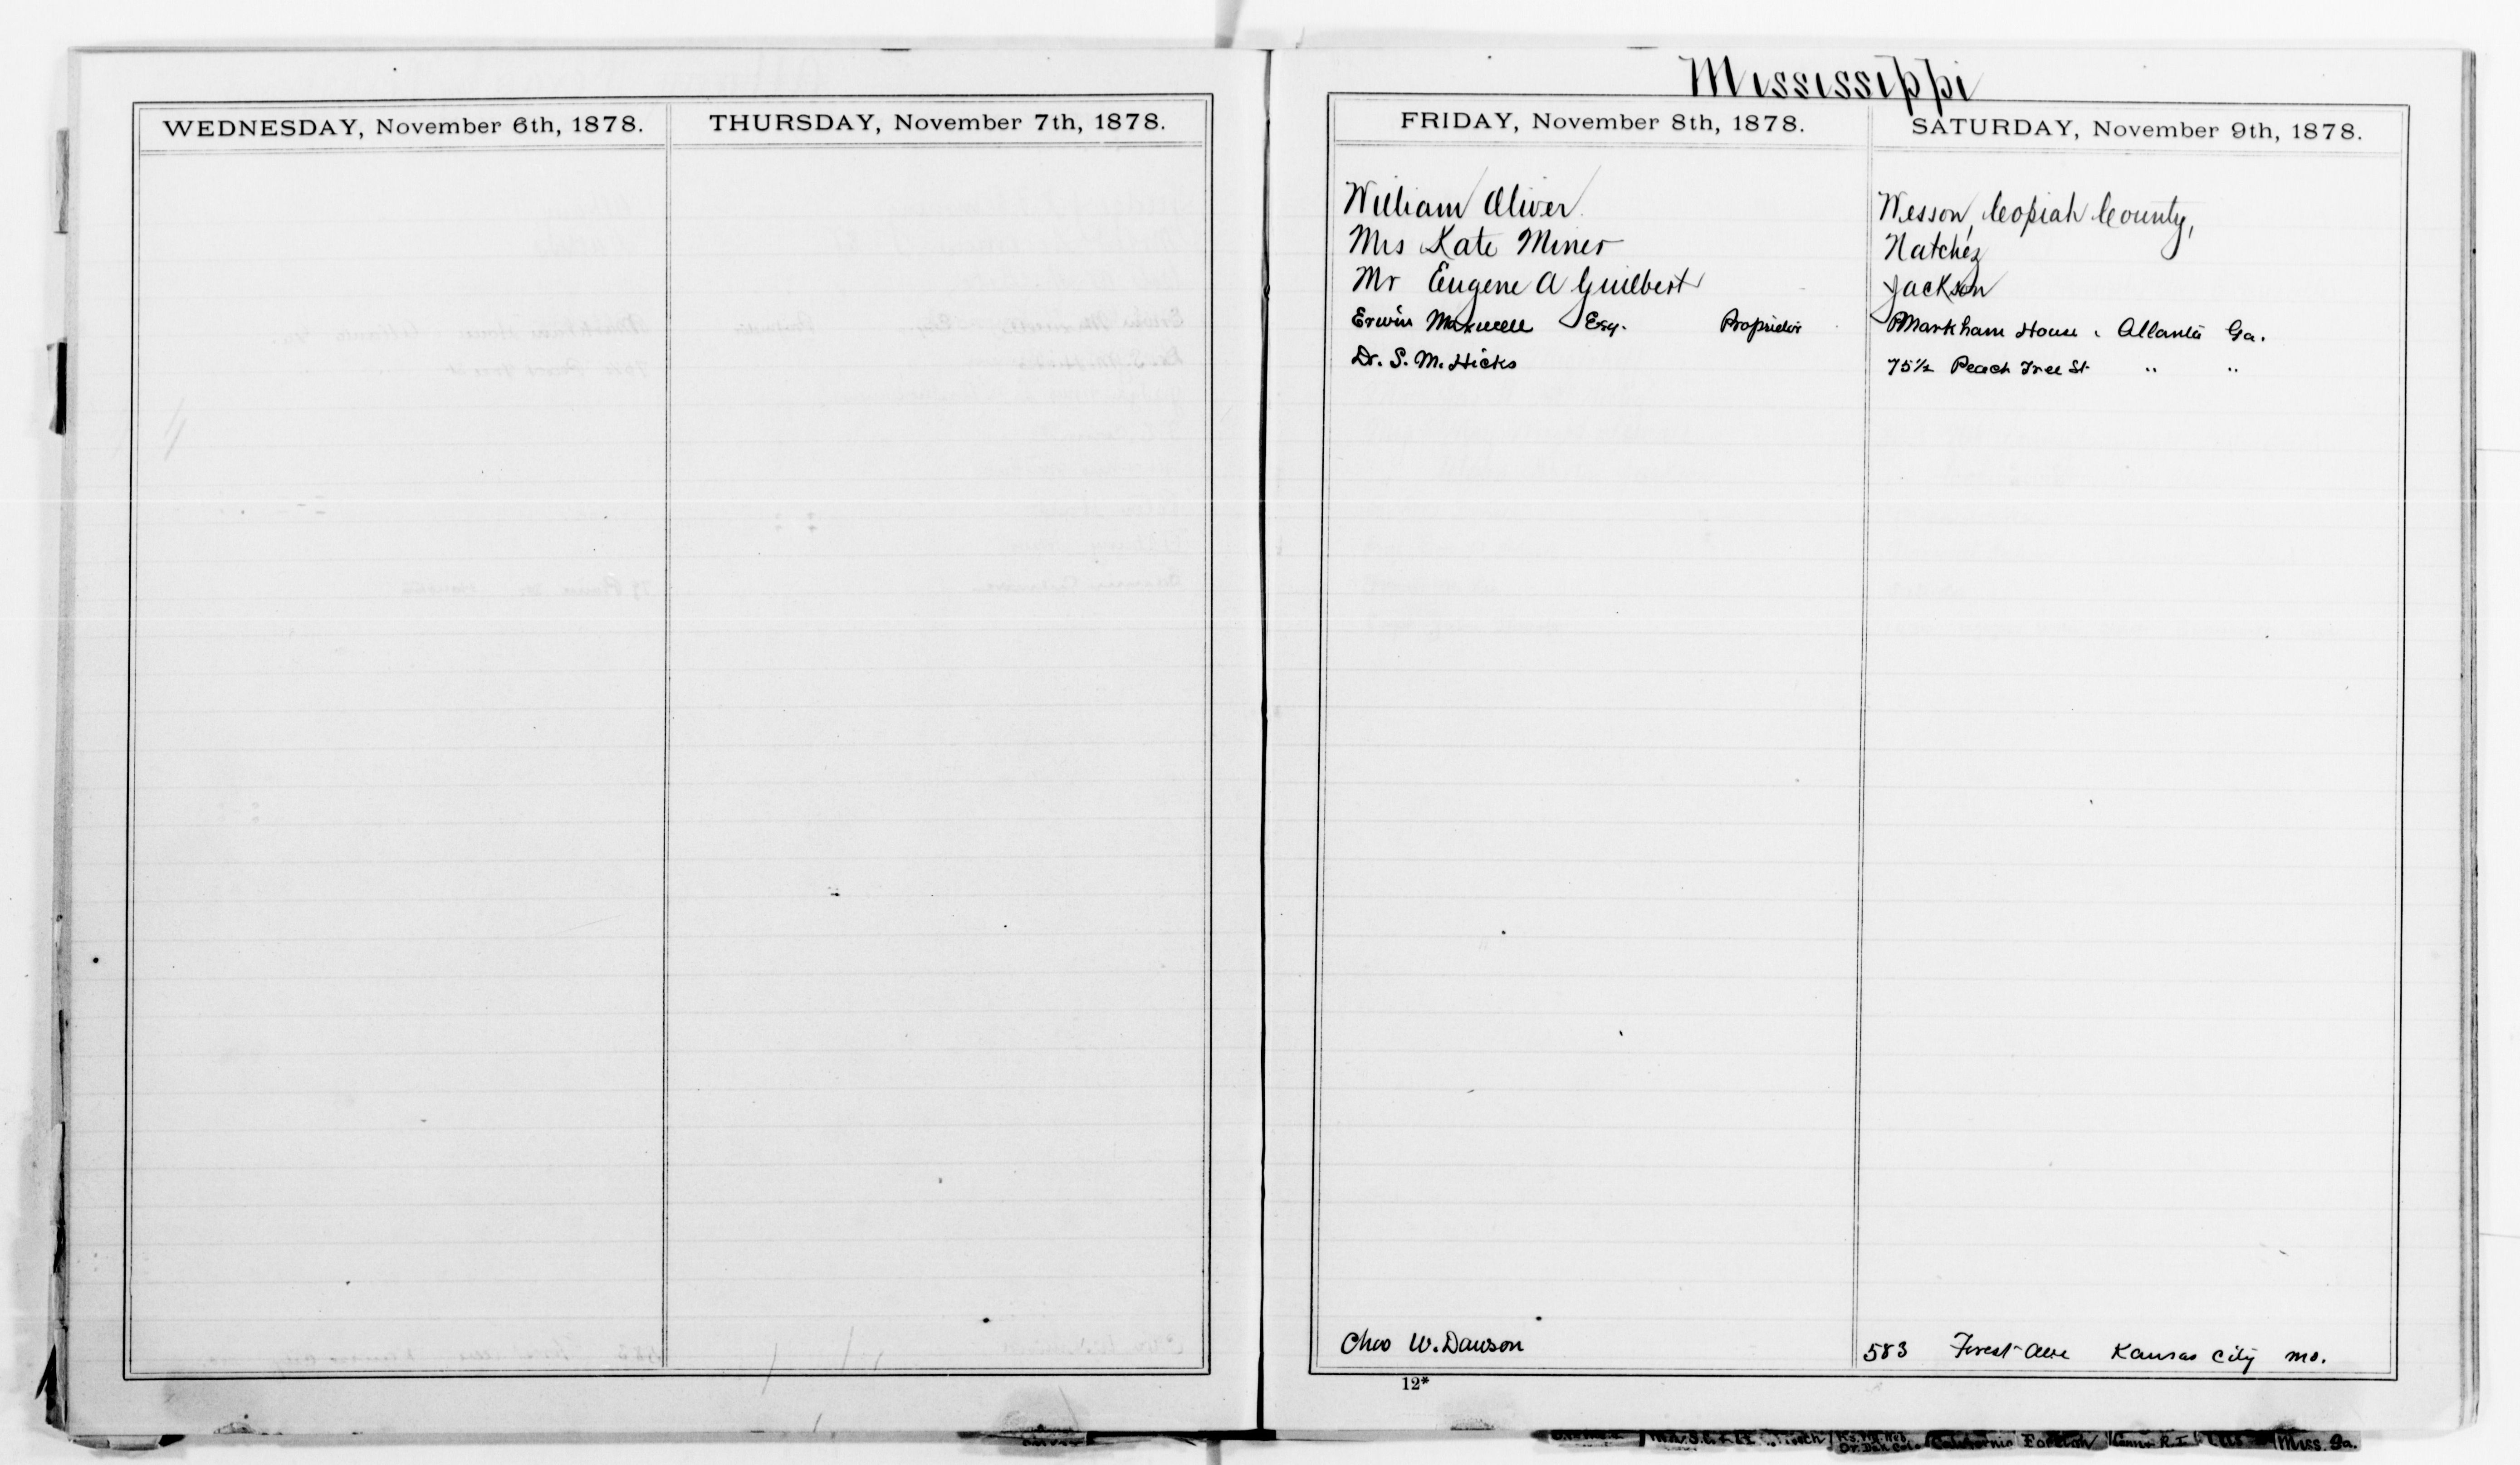 WEDNESDAY, November 6th, 1878.
THURSDAY, November 7th, 1878.
Mississippi
FRIDAY, November 8th, 1878.
SATURDAY, November 9th, 1878.
William Oliver Wesson, Copiah County,
Mrs Kate Miner Natchez
Mr Eugene A Guilbert Jackson
Erwin Maxwell Esq. Proprietor Markham House, Atlanta Ga.
Dr. S. M. Hicks 75½ Peach Tree St " "
Chas W. Dawson 583 Forest Ave Kansas City Mo.
12*
California Foreign Conn R.I. Miss. Ga.